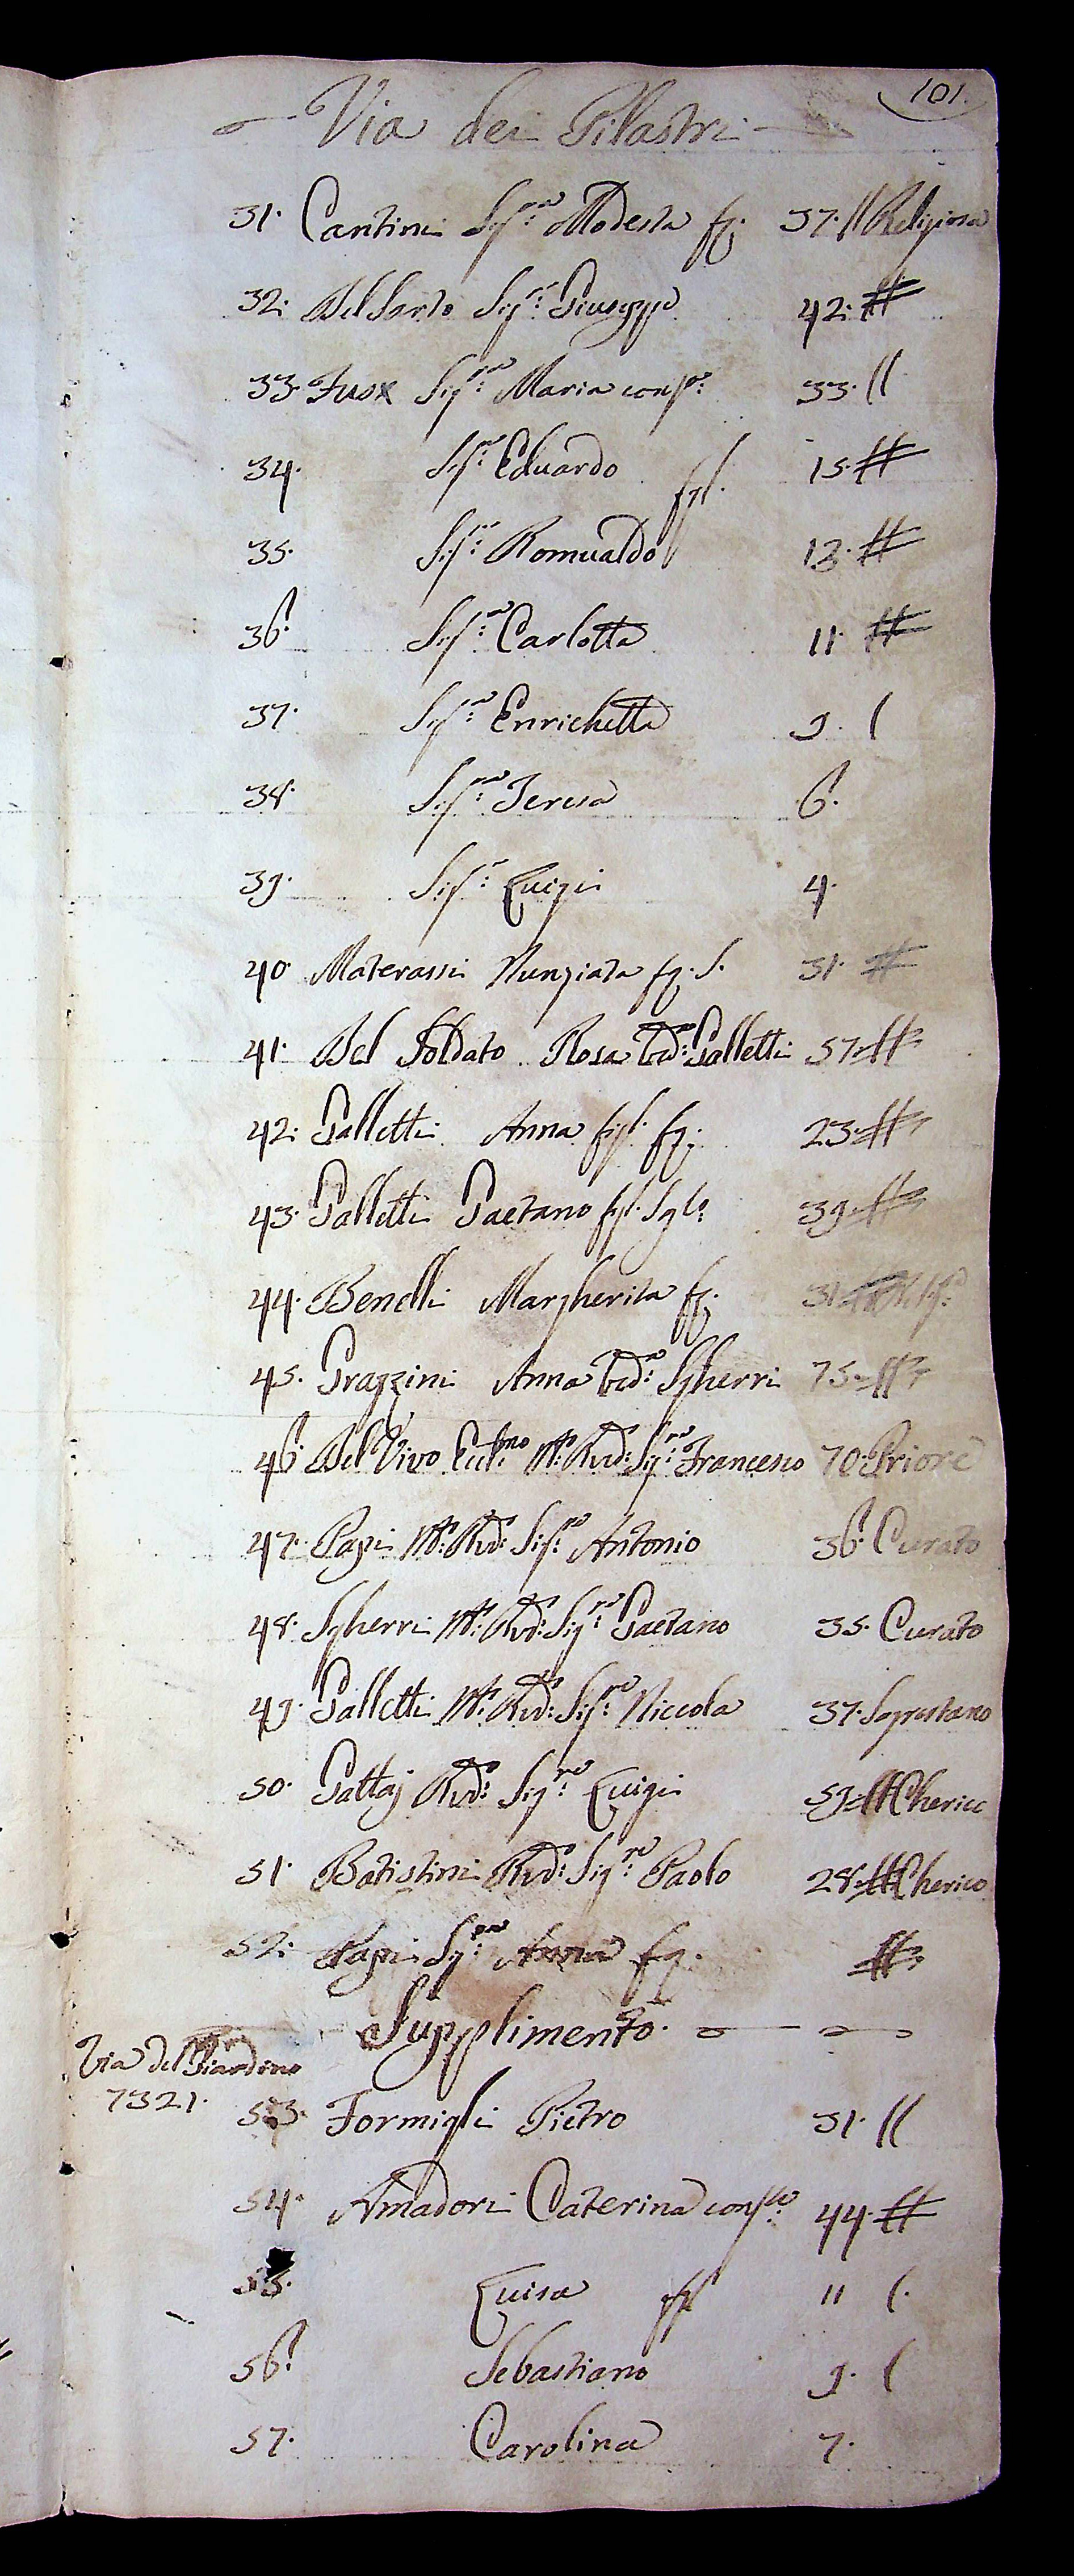 101.
Via dei Pilastri
31. Cantini Sig.ra Modesta fg. 37. // Religiosa
32. Del Sarto Sig.r Giuseppe 42. #
33. Sig.ra Maria cons.e 33. //
34. Sig.r Eduardo figl. 15. #
35. Sig.r Romualdo 13. #
36. Sig.ra Carlotta 11. #
37. Sig.ra Enrichetta 9. /
38. Sig.ra Teresa 6.
39. Sig.r Luigi 4.
40. Materassi Nunziata fg. S. 31. #
41. Del Soldato Rosa Ved.a Galletti 57. #
42. Galletti Anna figl. fg. 23. #
43. Galletti Gaetano figl. Sgl.o 39. #
44. Benelli Margherita fg. 31.
45. Grazzini Anna Ved.a Sgherri 75. #
46. Del Vivo M.to Rvd. Sig.re Francesco 70. Priore
47. Papi M.to Rvd. Sig.re Antonio 36. Curato
48. Sgherri M.to Rvd. Sig.re Gaetano 35. Curato
49. Galletti M.to Rvd. Sig.re Niccola 37. Sagrestano
50. Gattaj Rvd. Sig.re Luigi 59. # Cherico
51. Batistini Rvd. Sig.re Paolo 28. # Cherico
52. Papi Sig.ra Anna fg. #
Supplimento.
Via del Giardino
7321.
53. Formigli Pietro 51. //
54. Amadori Caterina cons.e 44. #
55. Luisa figl 11 /.
56. Sebastiano 9. /
57. Carolina 7.